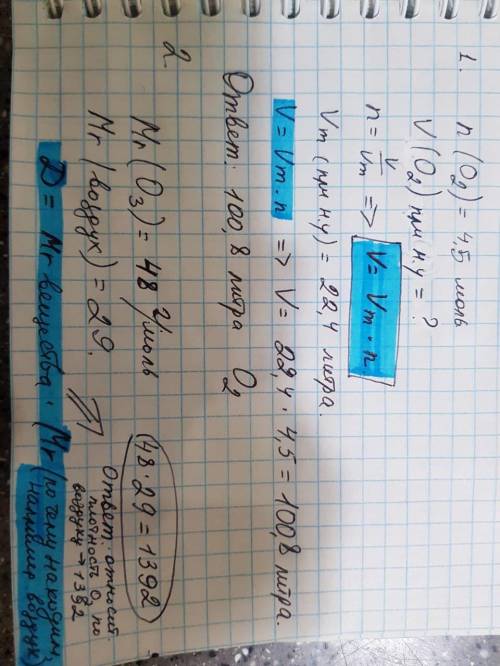 1.
n (O2) = 4,5 моль
V (O2) при н.у = ?
n = V/Vm => V = Vm · n
Vm (при н.у) = 22,4 литра.
V = Vm · n => V = 22,4 · 4,5 = 100,8 литра.
Ответ: 100,8 литра O2
2.
Mr (O3) = 48 г/моль
Mr (воздух) = 29.
48 · 29 = 1392
Ответ: относит. плотность O по воздуху → 1392
D = Mr вещества · Mr (по чему находим
например воздух)